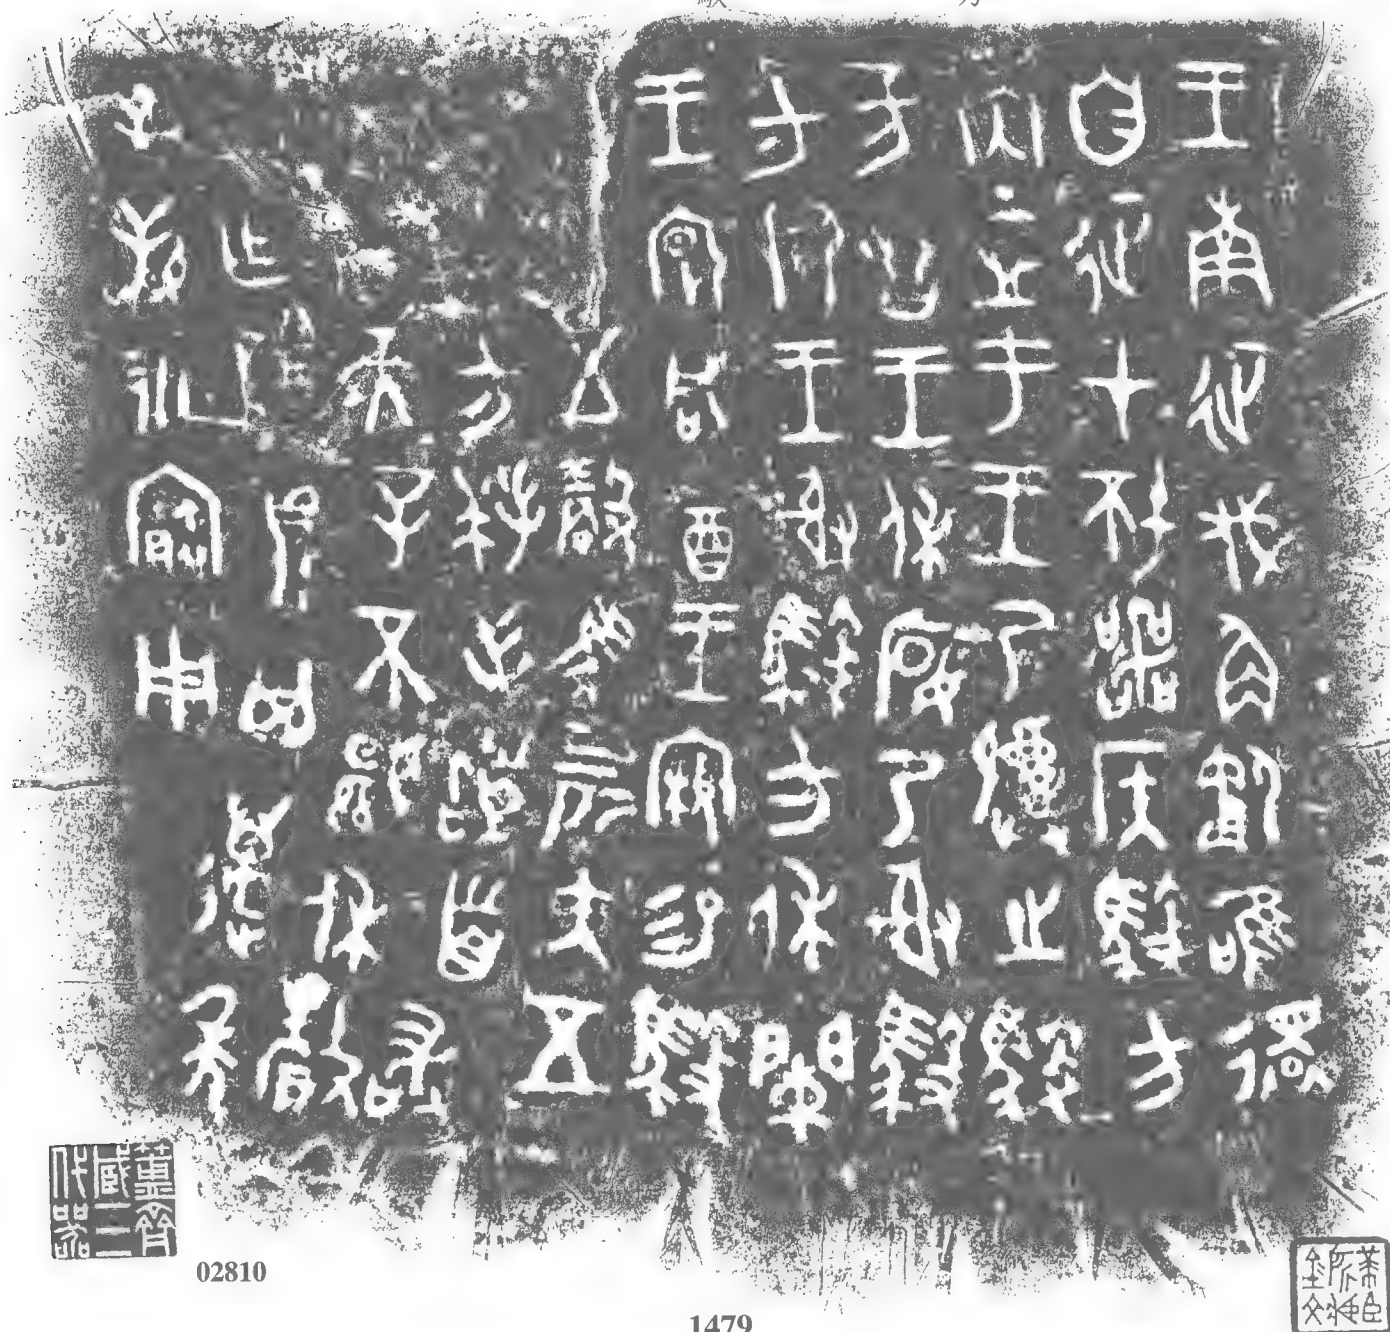 王南征伐角僪唯還
自征才坯噩侯馭方
內壺于王乃祼之馭
方侑王王休宴乃射馭
方卿王射馭方休闌
王宴咸酓王親易馭
五瑴馬四匹矢五
方拜手稽首敢
天子不顯休贅
乍尊鼎其邁年
子孫永寶用
02810
1479